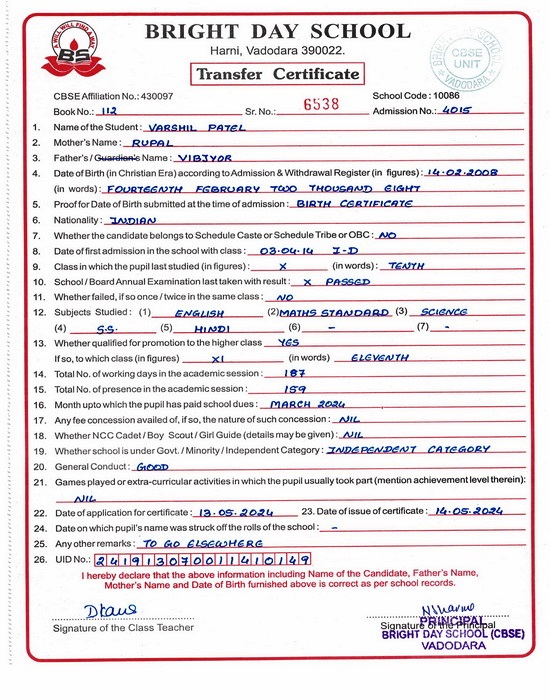 A WILL WILL FIND A WAY
BS
BRIGHT DAY SCHOOL
Harni, Vadodara 390022.
Transfer Certificate
BRIGHT DAY SCHOOL
CBSE
UNIT
VADODARA
CBSE Affiliation No.: 430097 School Code : 10086
Book No.: 112 Sr. No.: 6538 Admission No.: 4015
1. Name of the Student : VARSHIL PATEL
2. Mother's Name : RUPAL
3. Father's / Guardian's Name : VIBJYOR
4. Date of Birth (in Christian Era) according to Admission & Withdrawal Register (in figures) : 14.02.2008
(in words) : FOURTEENTH FEBRUARY TWO THOUSAND EIGHT
5. Proof for Date of Birth submitted at the time of admission : BIRTH CERTIFICATE
6. Nationality : INDIAN
7. Whether the candidate belongs to Schedule Caste or Schedule Tribe or OBC : NO
8. Date of first admission in the school with class : 03.04.14 I-D
9. Class in which the pupil last studied (in figures) : X (in words) : TENTH
10. School / Board Annual Examination last taken with result : X PASSED
11. Whether failed, if so once / twice in the same class : NO
12. Subjects Studied : (1) ENGLISH (2) MATHS STANDARD (3) SCIENCE
(4) S.S. (5) HINDI (6) - (7) -
13. Whether qualified for promotion to the higher class YES
If so, to which class (in figures) XI (in words) ELEVENTH
14. Total No. of working days in the academic session : 187
15. Total No. of presence in the academic session : 159
16. Month upto which the pupil has paid school dues : MARCH 2024
17. Any fee concession availed of, if so, the nature of such concession : NIL
18. Whether NCC Cadet / Boy Scout / Girl Guide (details may be given) : NIL
19. Whether school is under Govt. / Minority / Independent Category : INDEPENDENT CATEGORY
20. General Conduct : GOOD
21. Games played or extra-curricular activities in which the pupil usually took part (mention achievement level therein):
NIL
22. Date of application for certificate : 13.05.2024 23. Date of issue of certificate : 14.05.2024
24. Date on which pupil's name was struck off the rolls of the school : -
25. Any other remarks : TO GO ELSEWHERE
26. UID No.: 241913070011410149
I hereby declare that the above information including Name of the Candidate, Father's Name,
Mother's Name and Date of Birth furnished above is correct as per school records.
Signature of the Class Teacher Signature of the Principal
PRINCIPAL
BRIGHT DAY SCHOOL (CBSE)
VADODARA